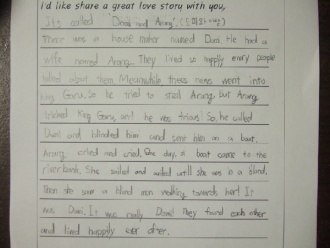 I'd like share a great love story with you,
It's called 'Domi and Arang'. (도미와 아랑)
There was a house maker named Domi. He had a
wife named Arang. They lived so happily every people
talked about them. Meanwhile, news went into
King Gaeru, So he tried to steal Arang. but Arang
tricked King Gaeru, and he was furious! So, he called
Domi and blinded him and sent him on a boat.
Arang cried and cried. One day, a boat came to the
river bank. She sailed and sailed until she was in a island.
Then she saw a blind man walking towards her! It
was Domi. It was really Domi! They found each other
and lived happily ever after.